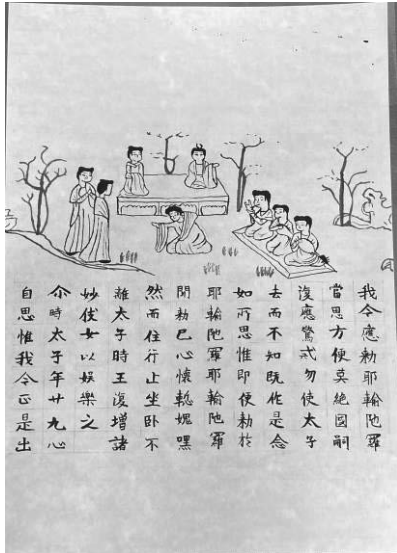 我今應勅耶輸陁羅
當思方便莫絕國嗣
復應驚戒勿使太子
去而不知既作是念
如所思惟即便勅於
耶輸陁羅耶輸陁羅
聞勅已心懷慙媿嘿
然而住行止坐卧不
離太子時王復增諸
妙伎女以娛樂之
尒時太子年廿九心
自思惟我今正是出